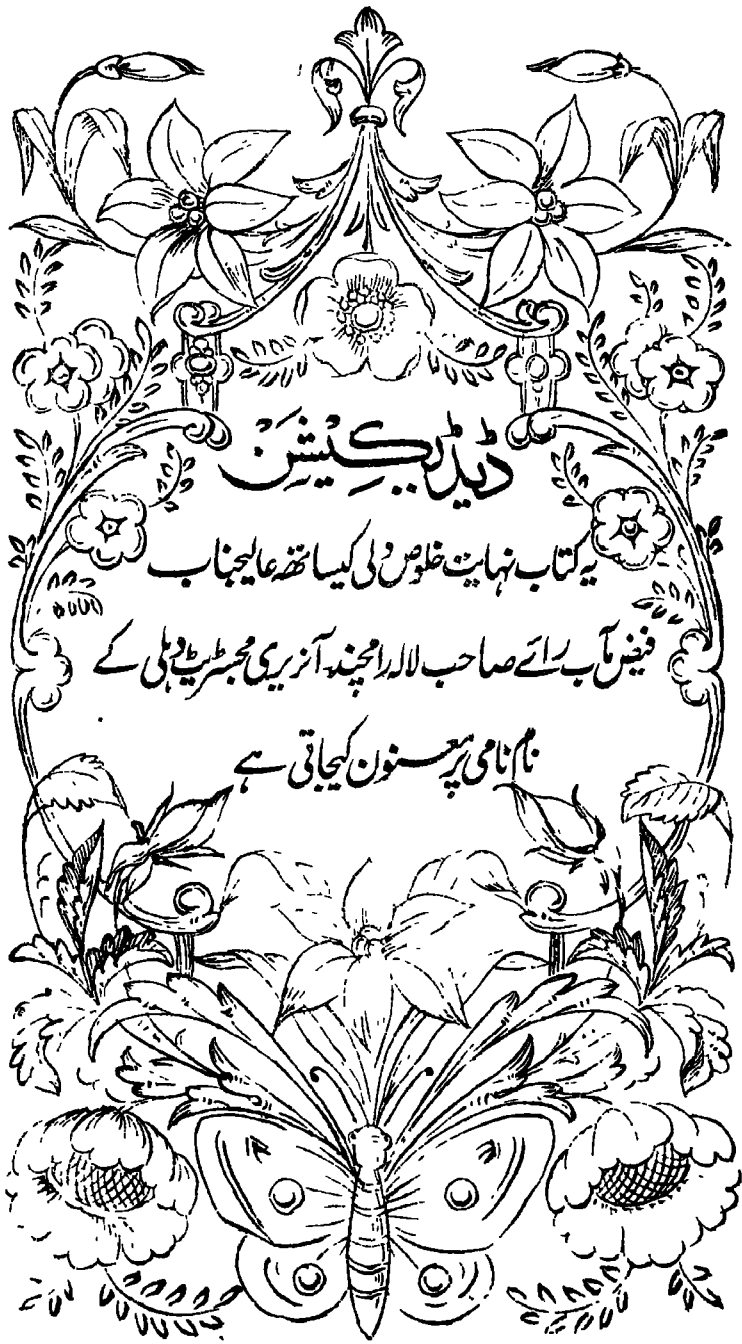 ڈیڈیکیشن
یہ کتاب نہایت خلوص دلی کیساتھ عالیجناب
فیض مآب رائے صاحب لالہ رامچند آنریری مجسٹریٹ دہلی کے
نام نامی پر معنون کیجاتی ہے